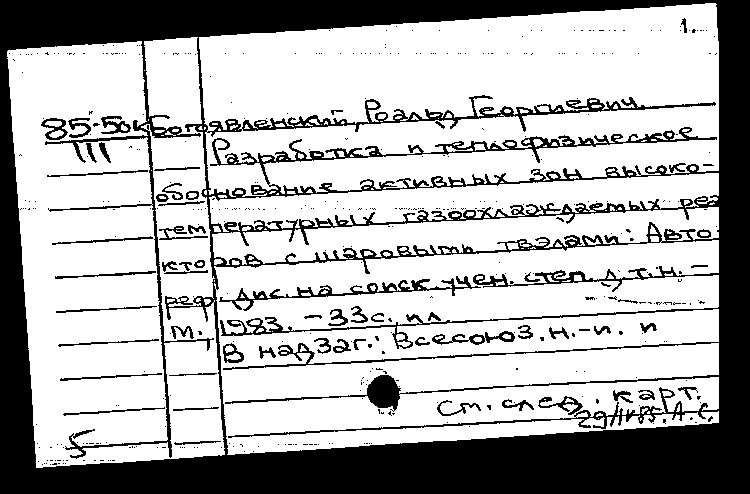 1.
85-50к Богоявленский, Роальд Георгиевич.
III Разработка и теплофизическое
обоснование активных зон высоко-
температурных газоохлаждаемых реа
кторов с шаровыми твэлами: Авто-
реф. дис. на соиск. учен. степ. д.т.н. –
М., 1983. – 33с., ил.
В надзаг.: Всесоюз. н.-и. и
См. след. карт.
29/IV85. А.С.
5